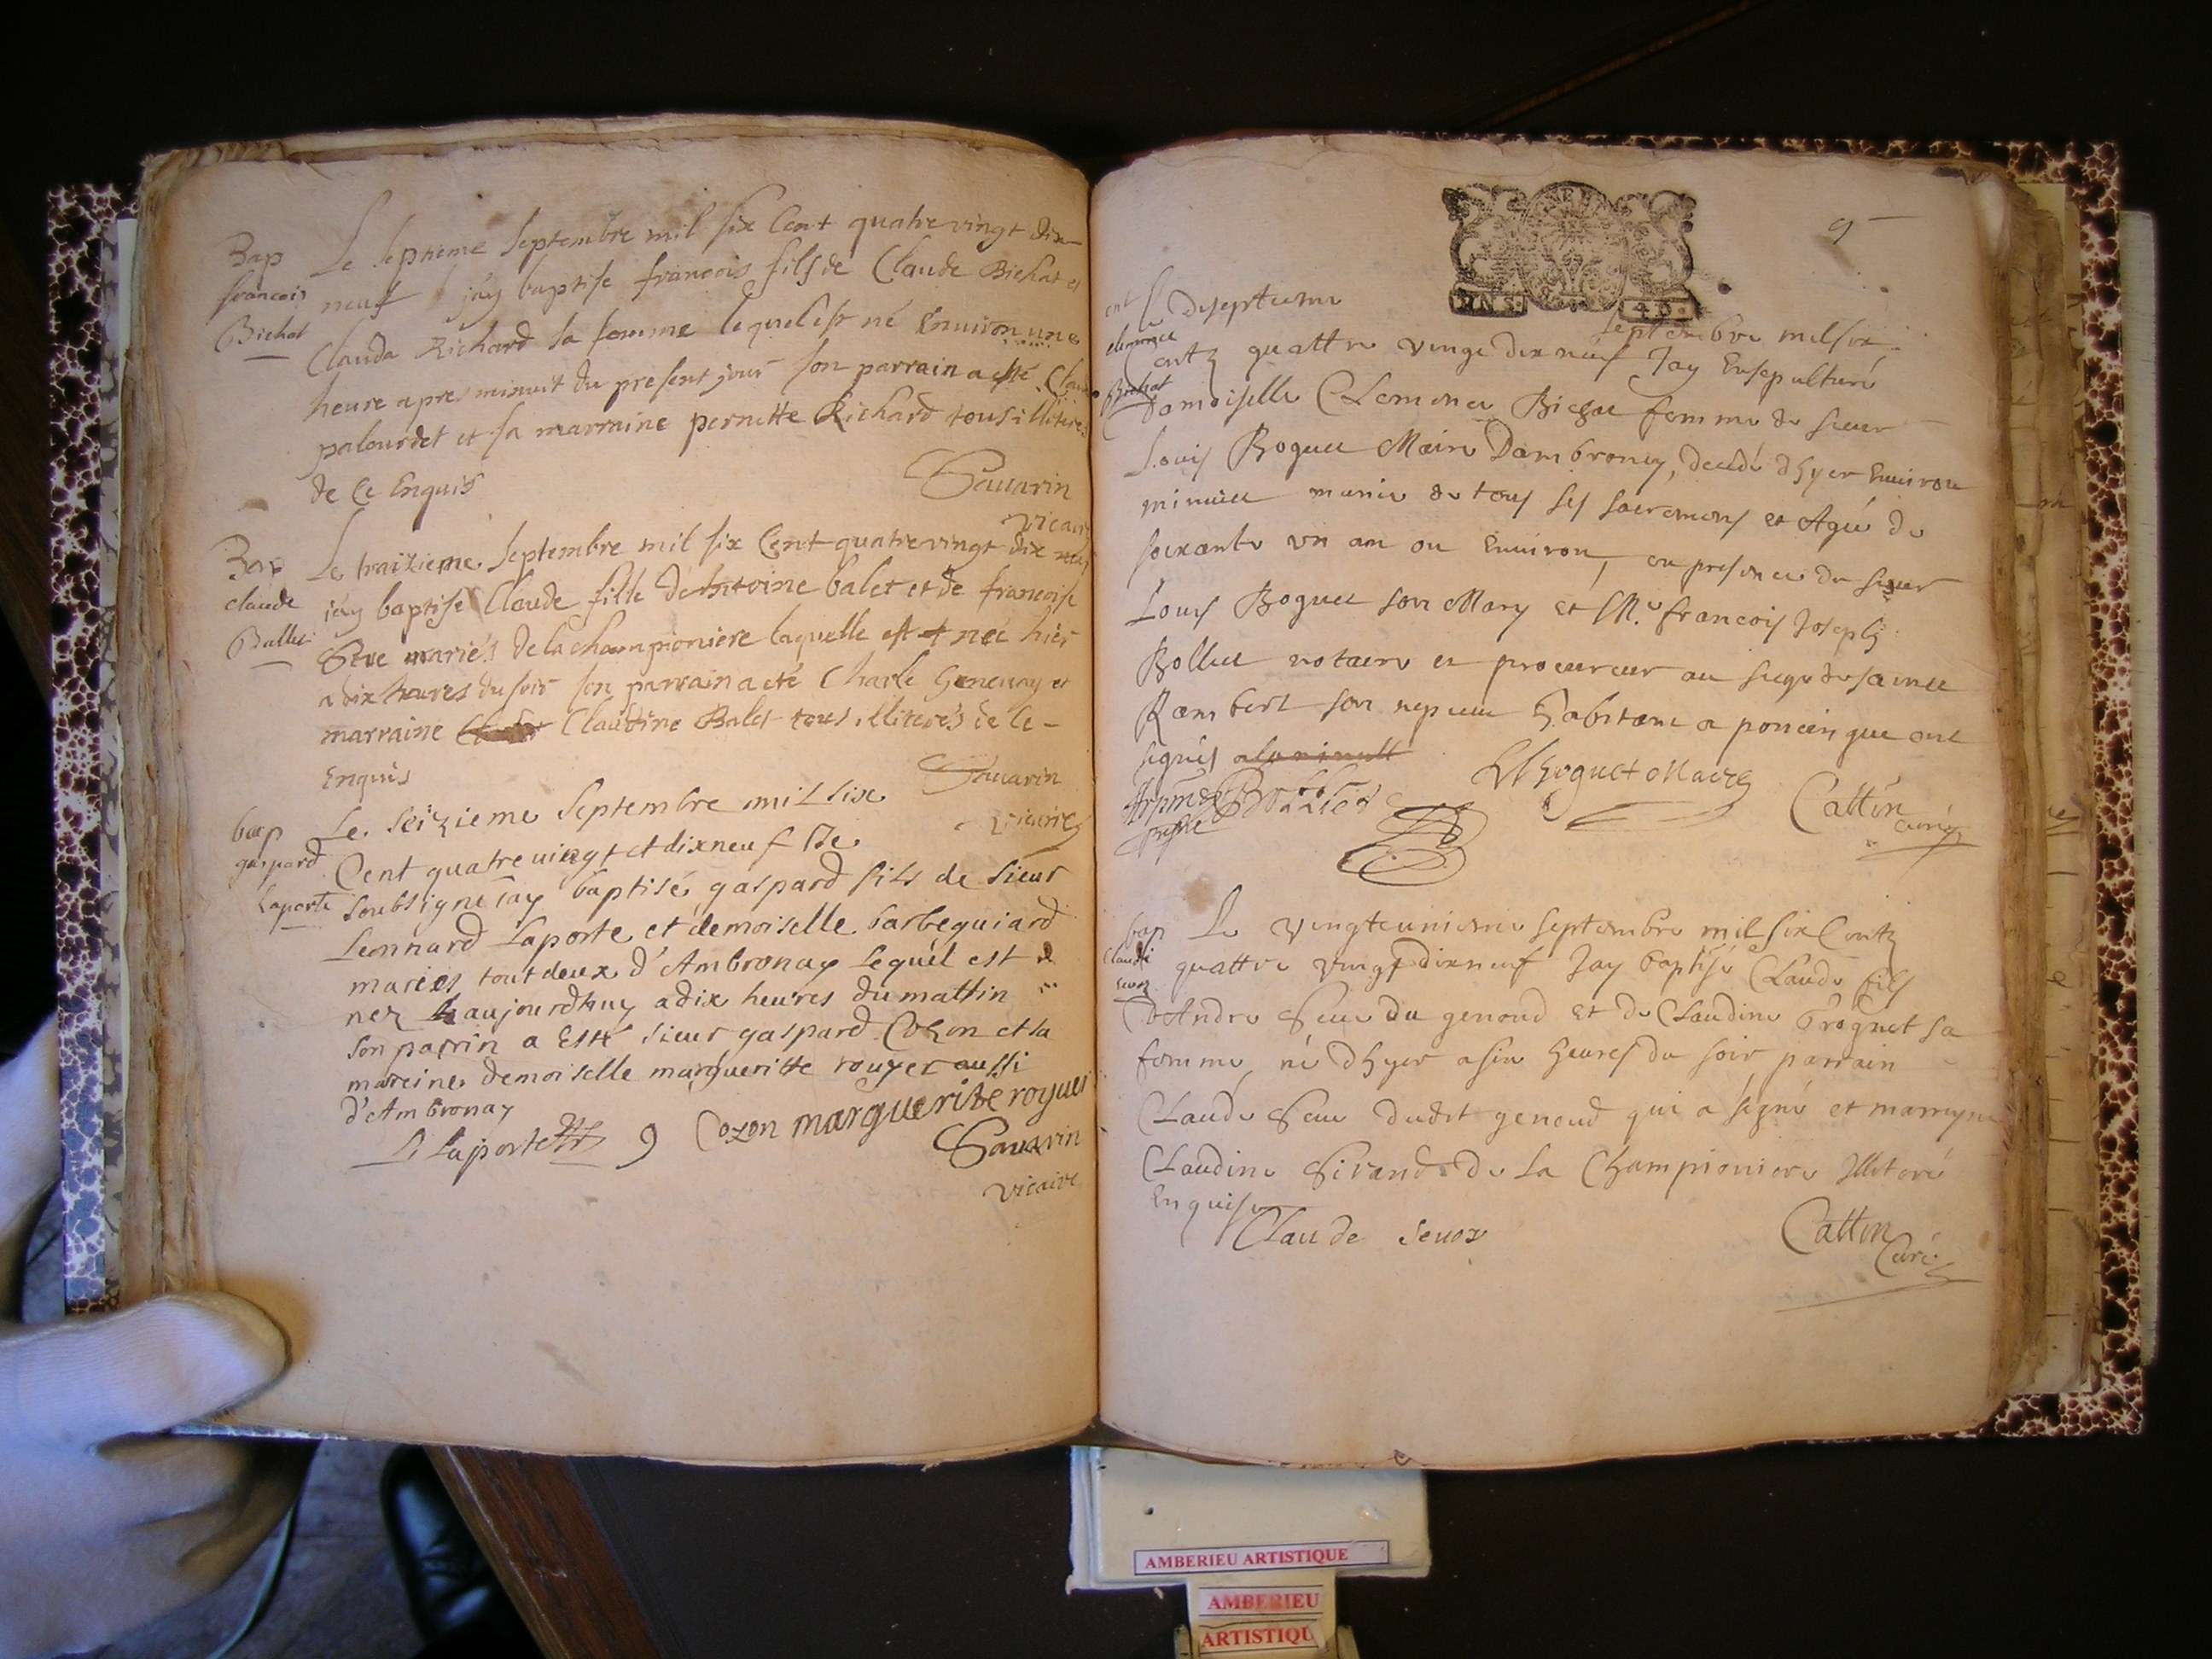 Bap
francois
Bichat
Le septieme septembre mil six Cent quatre vingt dix
neuf jay baptise francois fils de Claude Bichat et
Clauda Richard sa femme lequel est né Environ une
heure apres minuit du present jour son parrain a esté
palourdet et sa marraine pernette Richard tous illiteres
de Ce Enquis
Sauarin
vicaire
Bap
claude
Ballet
Le traizieme septembre mil six Cent quatre vingt dix neuf
jay baptise Claude fille de Antoine balet et de francoise
Seve mariés de la championiere laquelle est née hier
a dix heures du soir son parrain a eté Charle Genevay et
marraine Claudine Balet tous illiterés de Ce
Enquis
Sauarin
vicaire
bap
gaspard
Laporte
Le seizieme septembre mil six
Cent quatre uingt et dixneuf Je
soubsigné jay baptisé gaspard fils de sieur
Lennard Laporte et demoiselle barbe guiard
mariés tout deux d'Ambronay Lequel est
nez aujourdhuy a dix heures du mattin
son parrin a Esté sieur gaspard Cozon et sa
mareine demoiselle margueritte rouyer aussi
d'Ambronay
L Laporte g Cozon marguerite royuer
Sauarin
vicaire
9
ent
clemence
Bichat
Le diseptieme
septembre mil six
Centz quattre vingt dix neuf Jay Ensepulturé
Damoiselle Clemence Bichat femme de sieur
Louis Boguet Maire Dambronay, decedé dhyer Environ
minuict munie de tous ses sacremens et Agée de
soixante un an ou Environ, en presence du sieur
Louis Boguet son Mary et Mr. francois Joseph
Bollet notaire et procureur au siege de sainct
Rambert son nepueu habitant a poncin que ont
signés
Boguet Maire
Cattin
curé
bap
Claude
sevoz
Le vingteunieme septembre mil six Centz
quattre vingt dixneuf Jay baptisé Claude fils
DAndre Seve du genoud et de Claudine brognet sa
femme, né dhyer a six heures du soir, parrain
Claude Seve dudit genoud qui a signé et marrayne
Claudine Sirand de La Championiere Illiteré
Enquise
Claude sevoz
Cattin
Curé
AMBERIEU ARTISTIQUE
AMBERIEU
ARTISTIQU